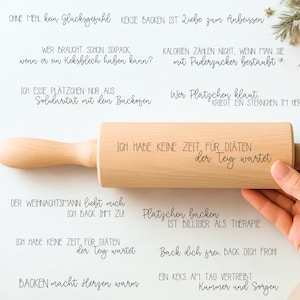 OHNE MEHL kein Glücksgefühl
KEKSE BACKEN IST Liebe zum Anbeissen
WER BRAUCHT SCHON SIXPACK,
wenn er ein Keksblech haben kann?
KALORIEN ZÄHLEN NICHT, WENN MAN SIE
mit Puderzucker bestäubt
ICH ESSE PLÄTZCHEN NUR AUS
Solidarität mit dem Backofen
Wer Plätzchen klaut,
KRIEGT EIN STERNCHEN IM HE
ICH HABE KEINE ZEIT FÜR DIÄTEN
der Teig wartet
DER WEIHNACHTSMANN liebt mich
ICH BACK IHM ZU!
Plätzchen backen
IST BILLIGER ALS THERAPIE
ICH HABE KEINE ZEIT FÜR DIÄTEN
der Teig wartet
Back dich frei, BACK DICH FROH!
BACKEN macht Herzen warm
EIN KEKS AM TAG VERTREIBT
Kummer und Sorgen